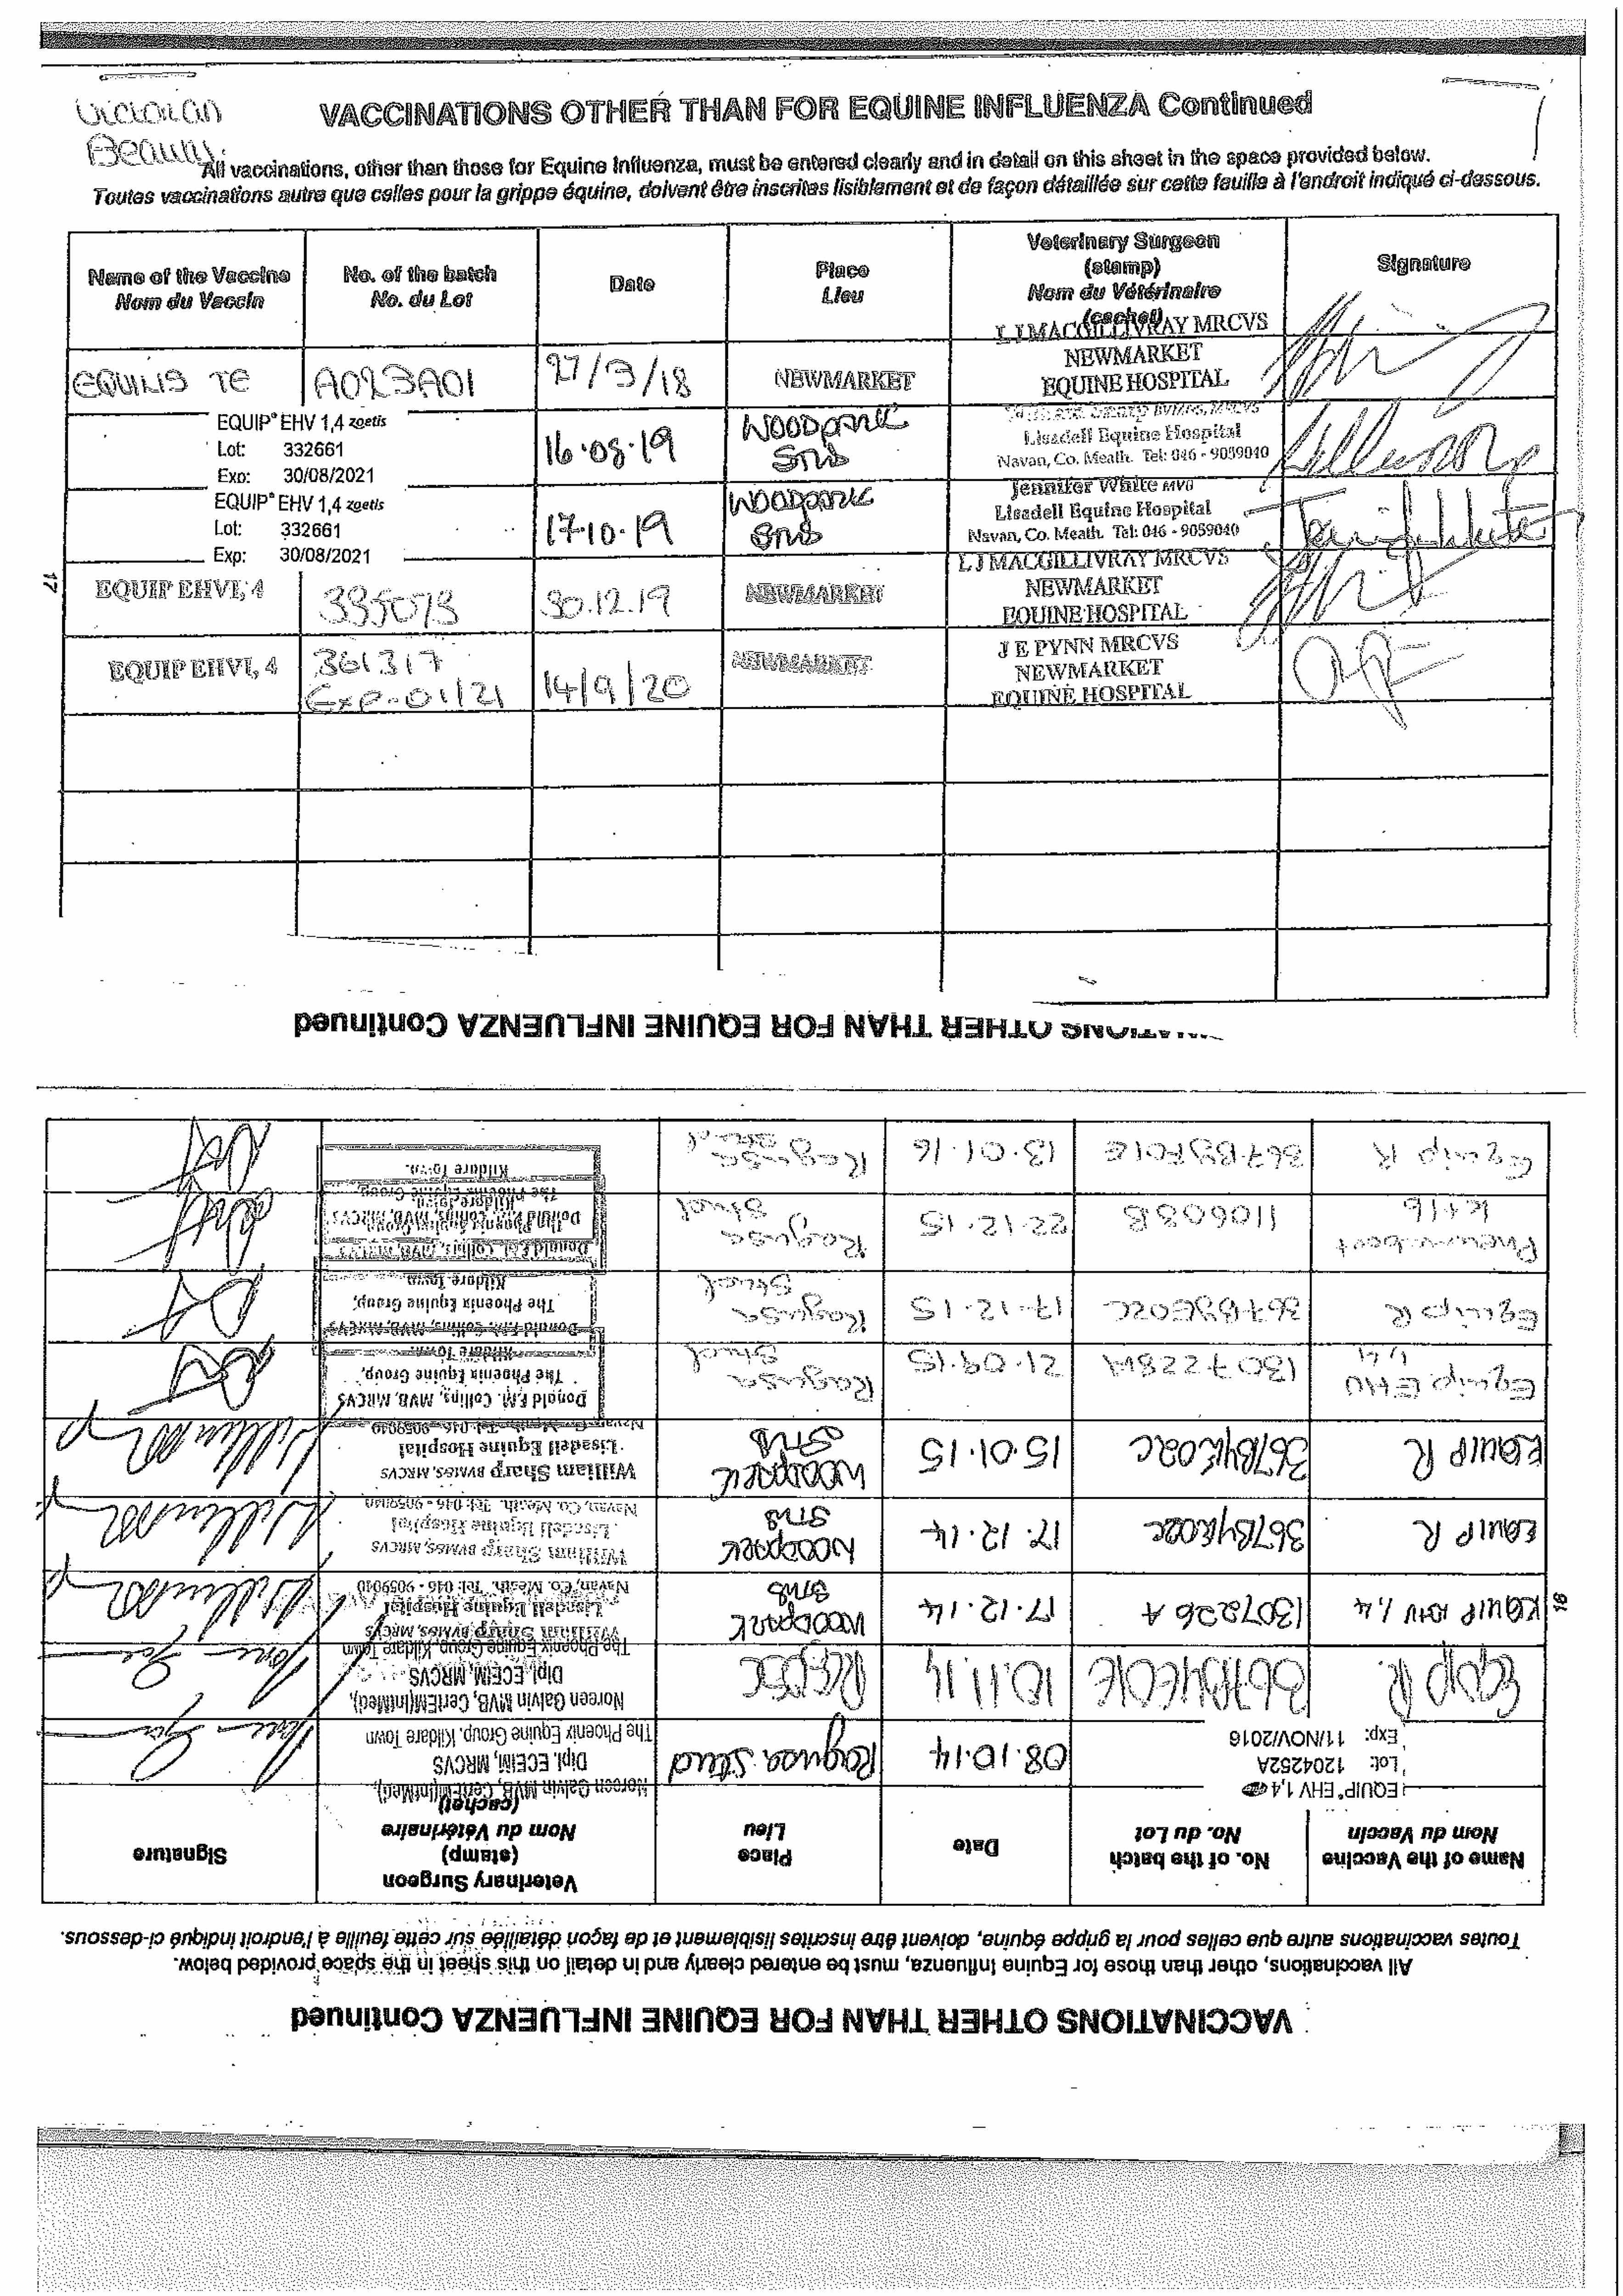 Victorian
Beauty.
VACCINATIONS OTHER THAN FOR EQUINE INFLUENZA Continued
All vaccinations, other than those for Equine Influenza, must be entered clearly and in detail on this sheet in the space provided below.
Toutes vaccinations autre que celles pour la grippe équine, doivent être inscrites lisiblement et de façon détaillée sur cette feuille à l'endroit indiqué ci-dessous.
Name of the Vaccine
Nom du Vaccin
No. of the batch
No. du Lot
Date
Place
Lieu
Veterinary Surgeon
(stamp)
Nom du Vétérinaire
(cachet)
Signature
EQUILIS TE
A023A01
27/3/18
NEWMARKET
L J MACGILLIVRAY MRCVS
NEWMARKET
EQUINE HOSPITAL
EQUIP® EHV 1,4 zoetis
Lot: 332661
Exp: 30/08/2021
16.08.19
WOODPARK
STUD
Lisadell Equine Hospital
Navan, Co. Meath. Tel: 046 - 9059040
EQUIP® EHV 1,4 zoetis
Lot: 332661
Exp: 30/08/2021
17.10.19
WOODPARK
STUD
Jennifer White MVB
Lisadell Equine Hospital
Navan, Co. Meath. Tel: 046 - 9059040
17
EQUIP EHV1, 4
335073
30.12.19
NEWMARKET
L J MACGILLIVRAY MRCVS
NEWMARKET
EQUINE HOSPITAL
EQUIP EHV1, 4
361317
Exp-01/21
14/9/20
NEWMARKET
J E PYNN MRCVS
NEWMARKET
EQUINE HOSPITAL
OTHER THAN FOR EQUINE INFLUENZA Continued
VACCINATIONS OTHER THAN FOR EQUINE INFLUENZA Continued
All vaccinations, other than those for Equine Influenza, must be entered clearly and in detail on this sheet in the space provided below.
Toutes vaccinations autre que celles pour la grippe équine, doivent être inscrites lisiblement et de façon détaillée sur cette feuille à l'endroit indiqué ci-dessous.
Name of the Vaccine
Nom du Vaccin
No. of the batch
No. du Lot
Date
Place
Lieu
Veterinary Surgeon
(stamp)
Nom du Vétérinaire
(cachet)
Signature
EQUIP® EHV 1,4
Lot: 1204252A
Exp: 11/NOV/2016
08.10.14
Ragusa Stud
Noreen Galvin MVB, CertEM(IntMed),
Dipl. ECEIM, MRCVS
The Phoenix Equine Group, Kildare Town
Equip R.
367B4E01E
10.11.14
Noreen Galvin MVB, CertEM(IntMed),
Dipl. ECEIM, MRCVS
The Phoenix Equine Group, Kildare Town
16
EQUIP EHV 1,4
1307226A
17.12.14
WOODPARK
STUD
William Sharp BVM&S, MRCVS
Lisadell Equine Hospital
Navan, Co. Meath. Tel: 046 - 9059040
EQUIP R
367B4E02C
17.12.14
WOODPARK
STUD
William Sharp BVM&S, MRCVS
Lisadell Equine Hospital
Navan, Co. Meath. Tel: 046 - 9059040
EQUIP R
367B4E02C
15.01.15
WOODPARK
STUD
William Sharp BVM&S, MRCVS
Lisadell Equine Hospital
Navan, Co. Meath. Tel: 046 - 9059040
Equip EHV
1,4
1307228A
21.09.15
Ragusa
Stud
Donald F.M. Collins, MVB, MRCVS
The Phoenix Equine Group,
Kildare Town.
Equip R
17.12.15
Ragusa
Stud
Donald F.M. Collins, MVB, MRCVS
The Phoenix Equine Group,
Kildare Town
Pneumabort
K+1b
110603B
22.12.15
Ragusa
Stud
Donald F.M. Collins, MVB, MRCVS
The Phoenix Equine Group,
Equip R
13.01.16
Ragusa
Stud
Kildare Town.